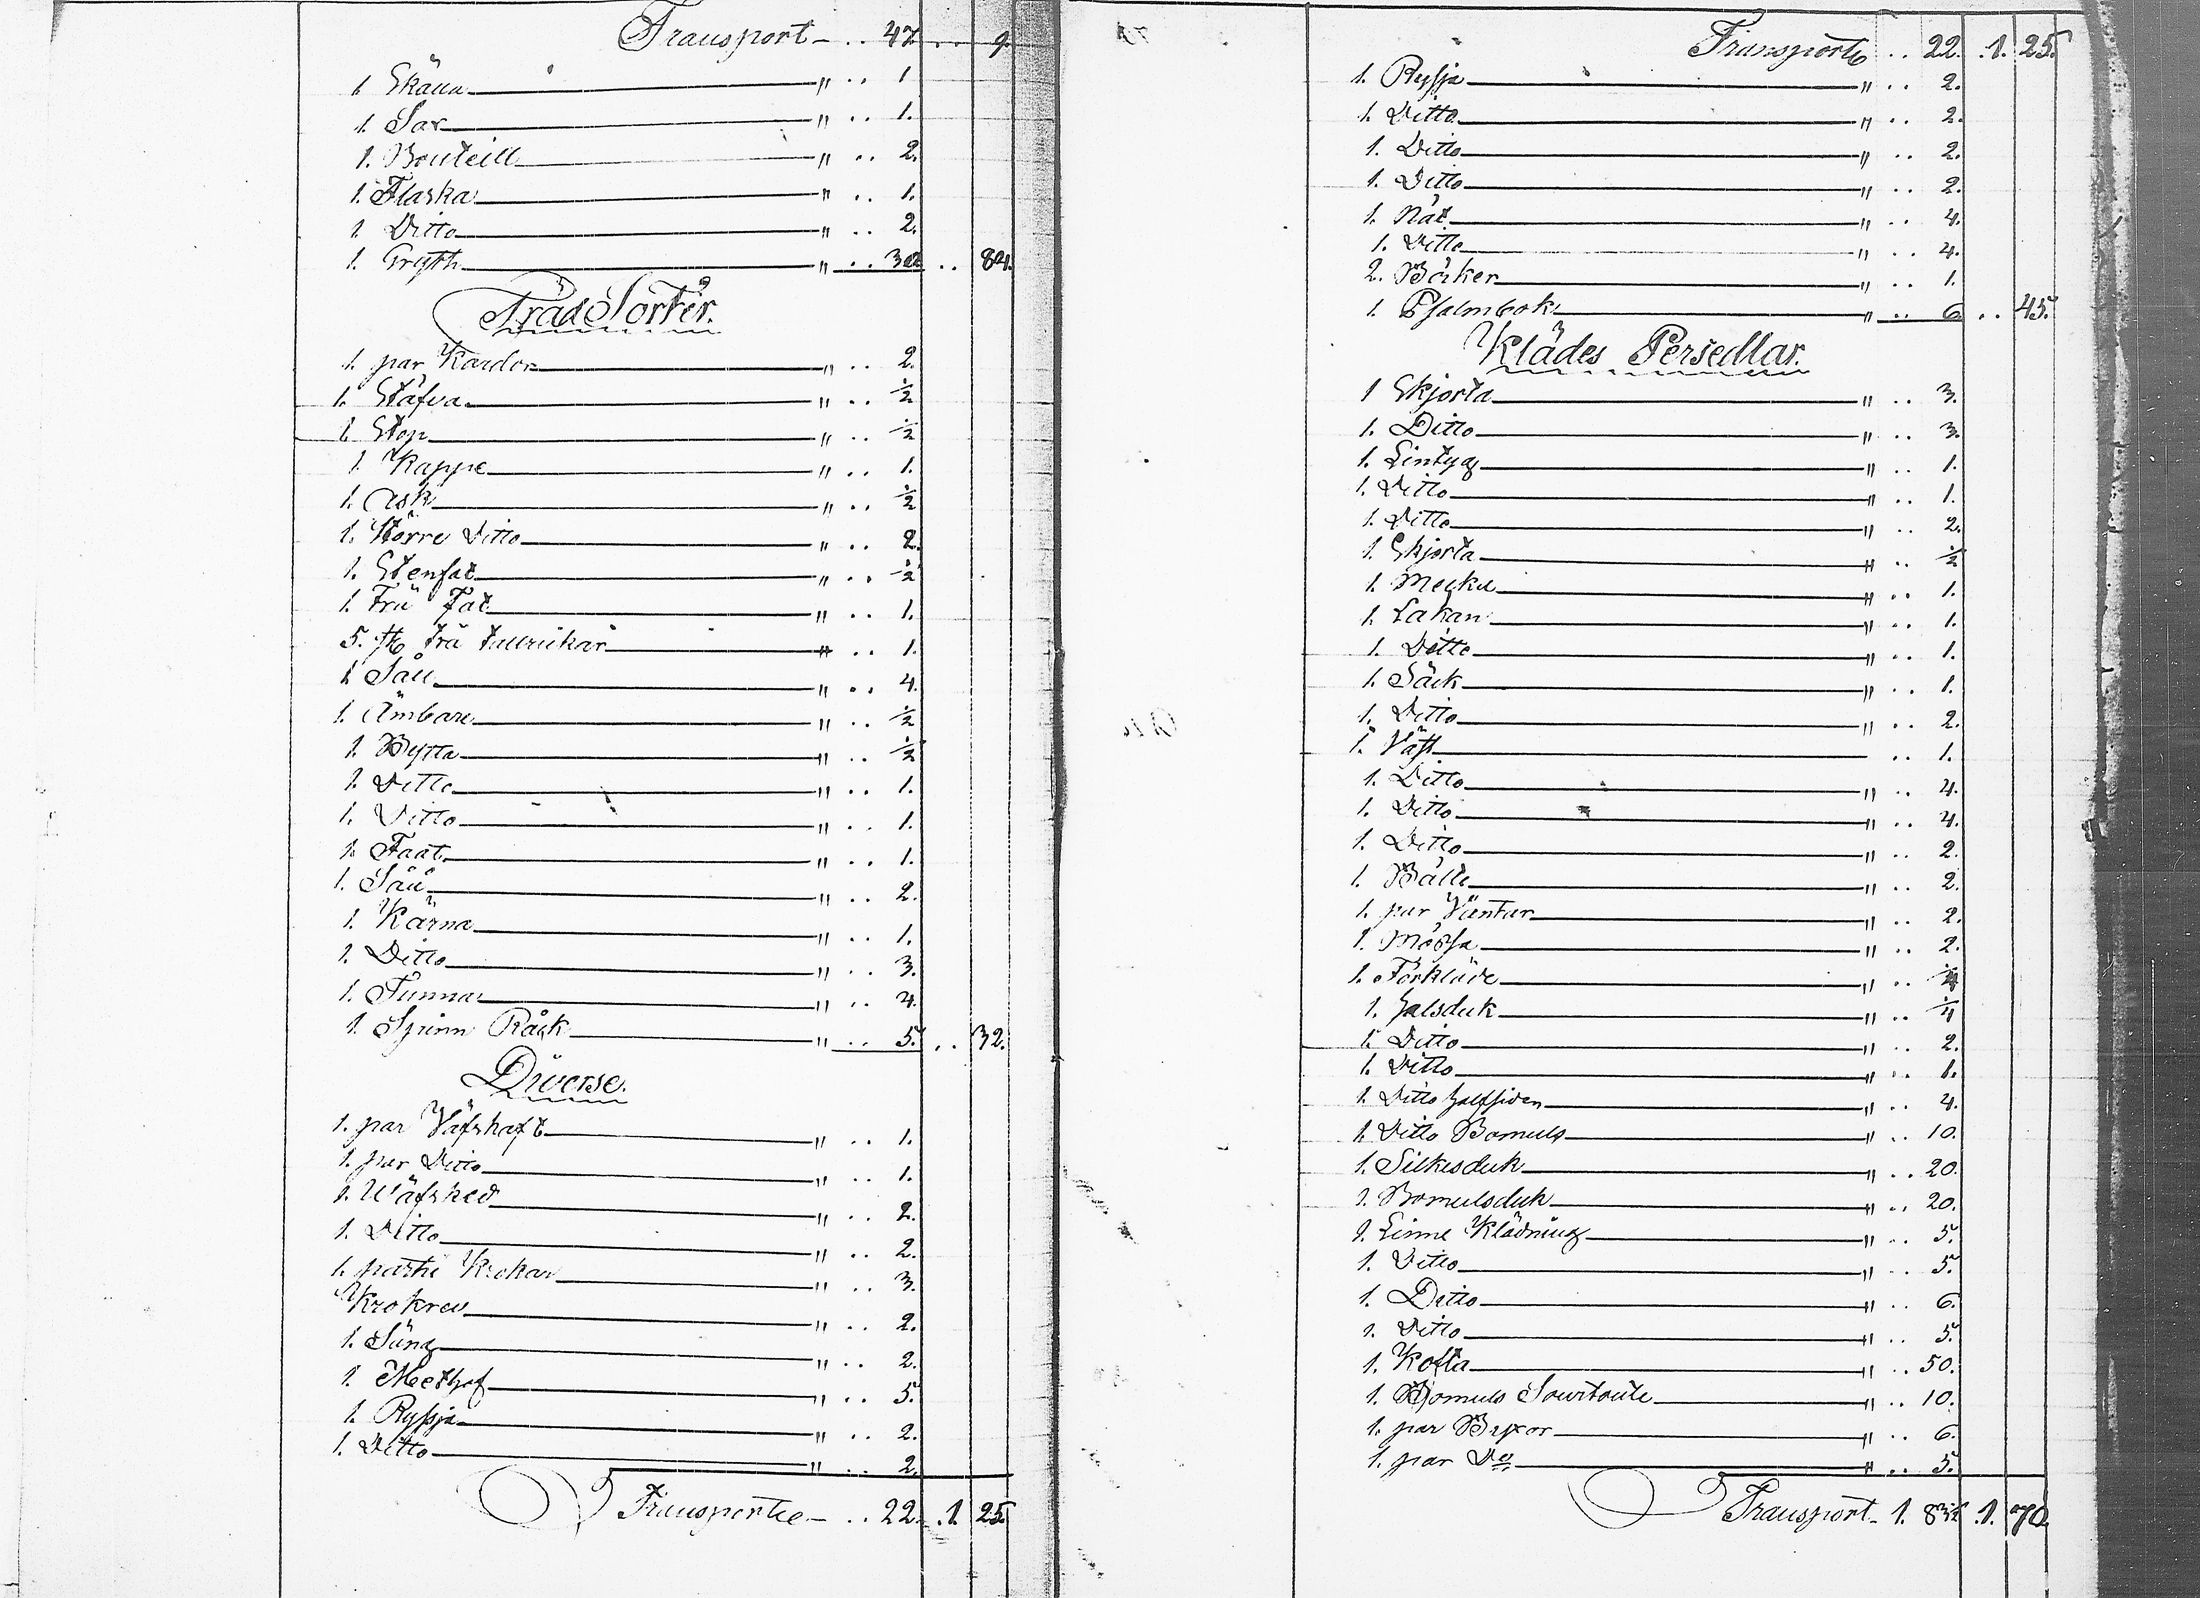 Transport — .. 47. .. 9.
1. Skåm — " .. 1
1. Sax — " .. 1.
1. Bouteill — " .. 2.
1. Flaska — " .. 1.
1. Ditto — " .. 2.
1. Gryta — " .. 30 .. 84.
Träd Sorter.
1. par Kardor — " .. 2.
1. Stäfva — " .. ½
1. Stop — " .. ½
1. Kappe — " .. 1.
1. Ask — " .. ½
1. Större Ditto — " .. 2.
1. Stenfat — " .. ½
1. Trä Fat — " .. 1.
5. st. trä tallrickar — " .. 1.
1. Såll — " .. 4.
1. Ämbare — " .. ½
1. Bytta — " .. ½
1. Ditto — " .. 1.
1. Ditto — " .. 1.
1. Faat — " .. 1.
1. Såll — " .. 2.
1. Kärna — " .. 1.
1. Ditto — " .. 3.
1. Tunna — " .. 4.
1. Spinn Råck — " .. 5. .. 32.
Diverse.
1. par Väfskaft — " .. 1.
1. par Ditto — " .. 1.
1. Wäfsked — " .. 2.
1. Ditto — " .. 2.
1. parti Krokar — " .. 3.
Krokrev — " .. 2.
1. Säng — " .. 2.
1. — " .. 5.
1. Ryssja — " .. 2.
1. Ditto — " .. 2.
Transporte — .. 22. .1. 25.
Transporte .. 22. .1. 25.
1. Ryssja — " .. 2.
1. Ditto — " .. 2.
1. Ditto — " .. 2.
1. Ditto — " .. 2.
1. Nät — " .. 4.
1. Ditto — " .. 4.
2. Böcker — " .. 1.
1. Psalmbok — " .. 6 .. 45.
Klädes Persedlar.
1 Skjorta — " .. 3.
1. Ditto — " .. 3.
1. Lintyg — " .. 1.
1. Ditto — " .. 1.
1. Ditto — " .. 2.
1. Skjorta — " .. ½
1. — " .. 1.
1. Lakan — " .. 1.
1. Ditto — " .. 1.
1. Säck — " .. 1.
1. Ditto — " .. 2.
1. Väst — .. 1.
1. Ditto — " .. 4.
1. Ditto — " .. 4.
1. Ditto — " .. 2.
1. Bälte — " .. 2.
1. par Vantar — " .. 2.
1. Mössa — " .. 2.
1. Förkläde — " .. ¼
1. Halsduk — " .. ¼
1. Ditto — " .. 2.
1. Ditto — " .. 1.
1. Ditto halfsiden — " .. 4.
1. Ditto Bomuls — " .. 10.
1. Silkesduk — " .. 20.
1. Bomulsduk — " .. 20.
1. Linne Klädning — " .. 5.
1. Ditto — " .. 5.
1. Ditto — " .. 6.
1. Ditto — " .. 5.
1. Kofta — " .. 50.
1. Bomuls Sourtoute — " .. 10.
1. par Byxor — " .. 6.
1. par Do — " .. 5.
Transport — 1. 83½ .1. 70.